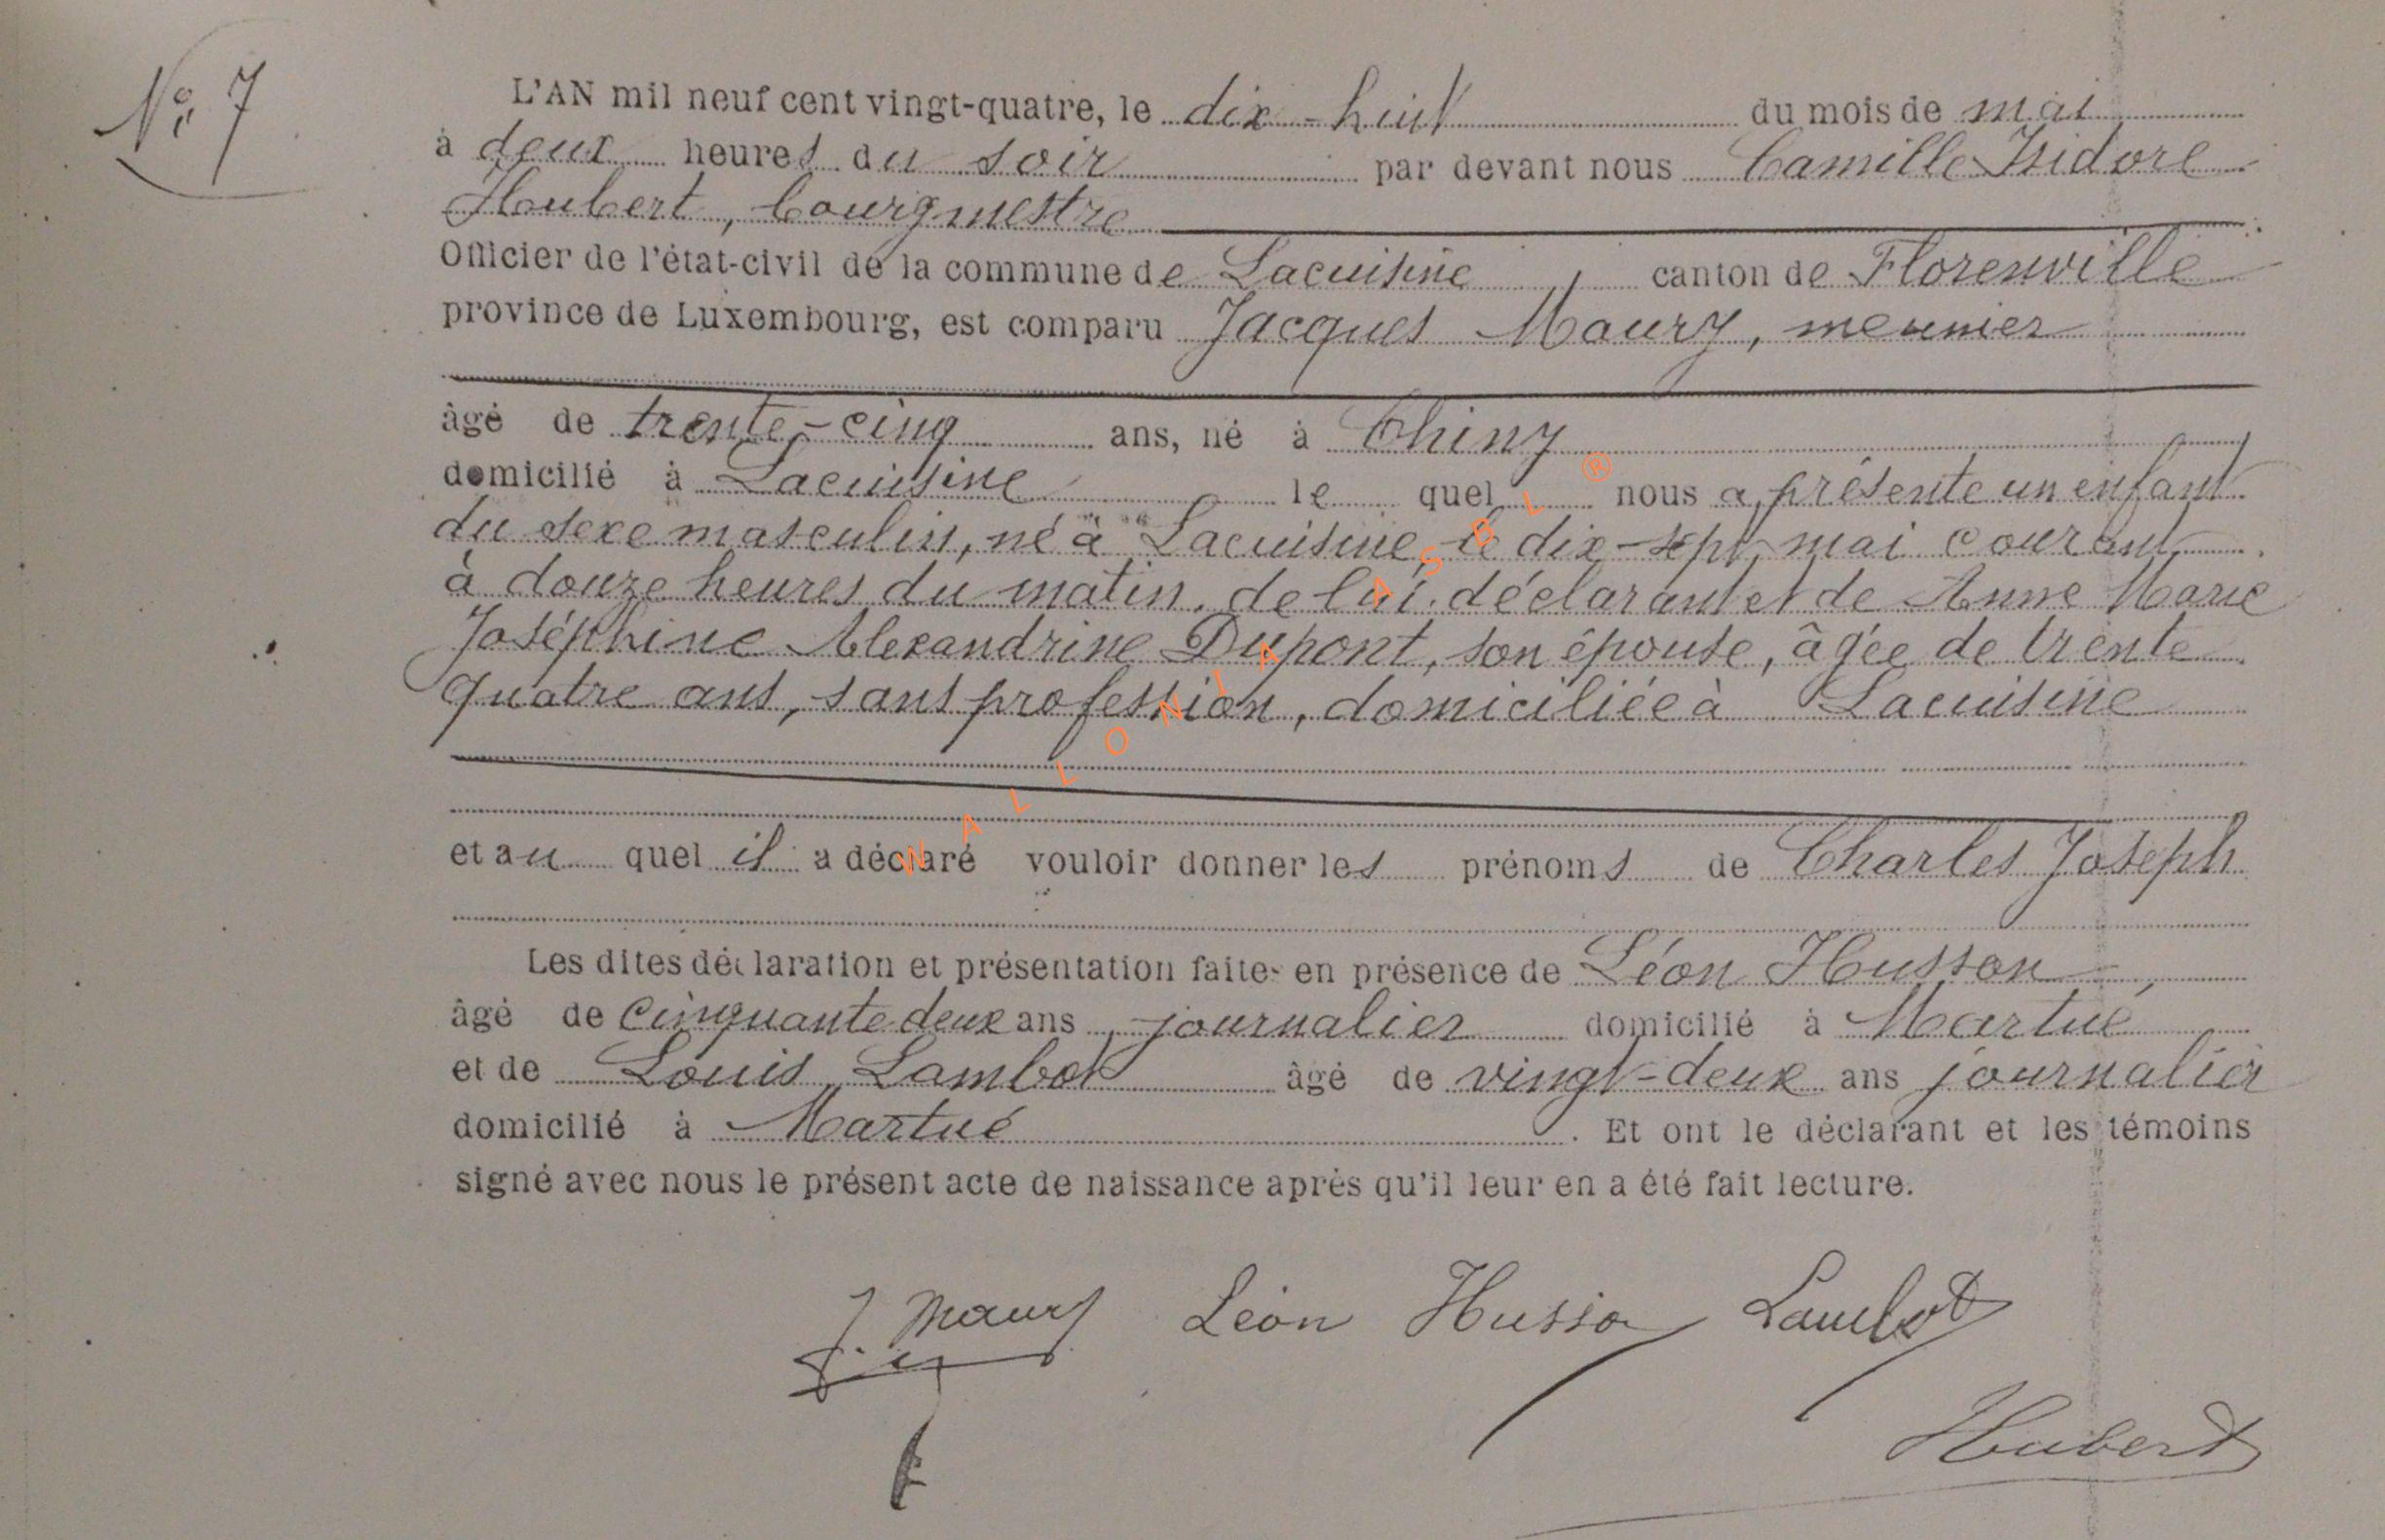 N° 7
L'AN mil neuf cent vingt-quatre, le dix-huit du mois de mai
à deux heures du soir par devant nous Camille Isidore
Hubert, bourgmestre
Officier de l'état-civil de la commune de Lacuisine, canton de Florenville
province de Luxembourg, est comparu Jacques Maury, meunier
âgé de trente-cinq ans, né à Chiny
domicilié à Lacuisine le quel nous a présenté un enfant
du sexe masculin, né à Lacuisine, le dix-sept mai courant
à douze heures du matin, de lui déclarant et de Anne Marie
Joséphine Alexandrine Dupont, son épouse, âgée de trente
quatre ans, sans profession, domiciliée à Lacuisine
et au quel il a déclaré vouloir donner les prénoms de Charles Joseph
Les dites déclaration et présentation faites en présence de Léon Husson,
âgé de cinquante-deux ans, journalier domicilié à Martué
et de Louis Lambot âgé de vingt-deux ans journalier
domicilié à Martué. Et ont le déclarant et les témoins
signé avec nous le présent acte de naissance après qu'il leur en a été fait lecture.
J Maury Léon Husson Lambot
Hubert
WALLONIA ASBL ®